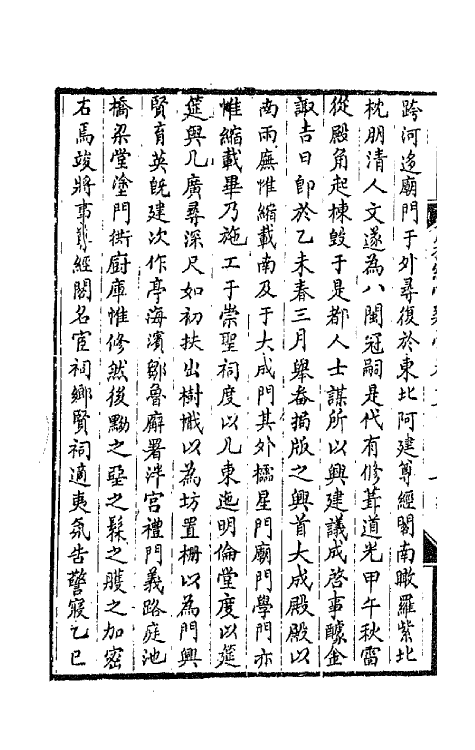 跨河迻廟門于外尋復於東北阿建尊經閣南瞰羅紫北
枕朋清人文遂為八閩冠嗣是代有修葺道光甲午秋雷
從殿角起棟毀于是都人士謀所以興建議成啓事醵金
諏吉日即於乙未春三月舉畚挶版之興首大成殿殿以
南兩廡惟縮載南及于大成門其外櫺星門廟門學門亦
惟縮載畢乃施工于崇聖祠度以几東迤明倫堂度以筵
筵與几廣尋深尺如初扶出樹幟以為坊置栅以為門興
賢育英旣建次作亭海濱鄒魯廨署泮宮禮門義路庭池
橋梁堂塗門術廚庫惟修然後黝之堊之髹之雘之加密
石焉竣將事尊經閣名宦祠鄉賢祠適夷氛告警寢乙巳